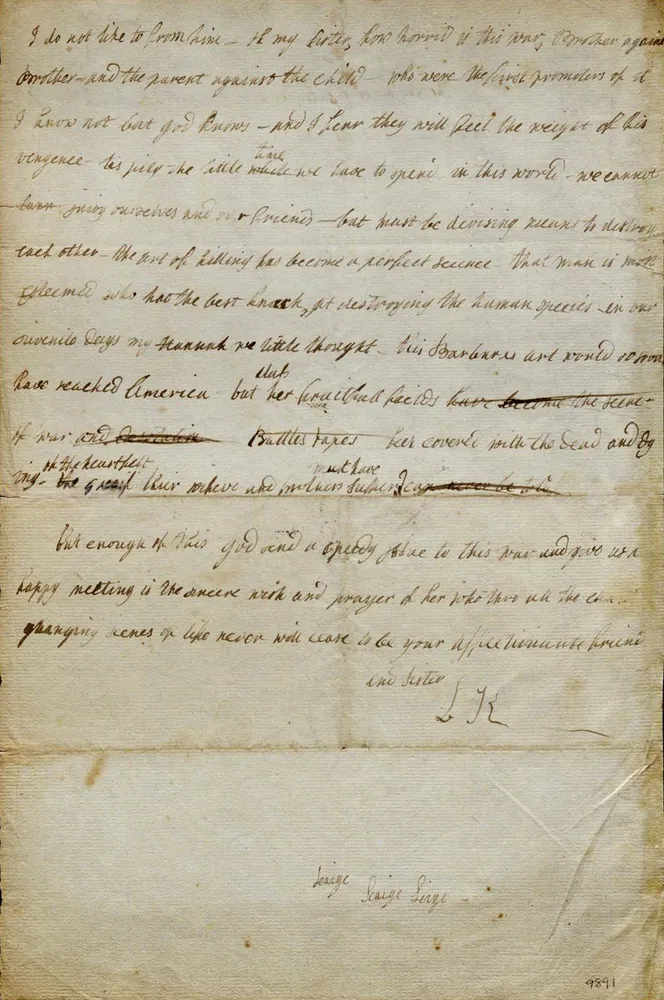 I do not like to from him – oh my sister, how horrid is this war, Brother against
Brother – and the parent against the child – who were the first promoters of it
I know not but god knows – and I fear they will feel the weight of his
vengence – tis pity the little while time we have to spend in this world – we cannot
injoy ourselves and our friends – but must be divising means to destroy
each other – the art of killing has become a perfect science – that man is most
esteemed who has the best knack at destroying the human species – in our
juvenile days my Hannah we little thought – this Barbarous art would so soon
have reached America – but alas her fruitfull fields have become the scene
of war and desolation Battles rapes her covered with the dead and dy
ing – of the heartfelt the greif thier wives and mothers must have suffer can never be
But enough of this god send a speedy issue to this war and give us a
happy meeting is the sincere wish and prayer of her who thro all the
quanging scenes of life never will cease to be your affectionate friend
and sister
L K
Seige
Seige Seige
9891